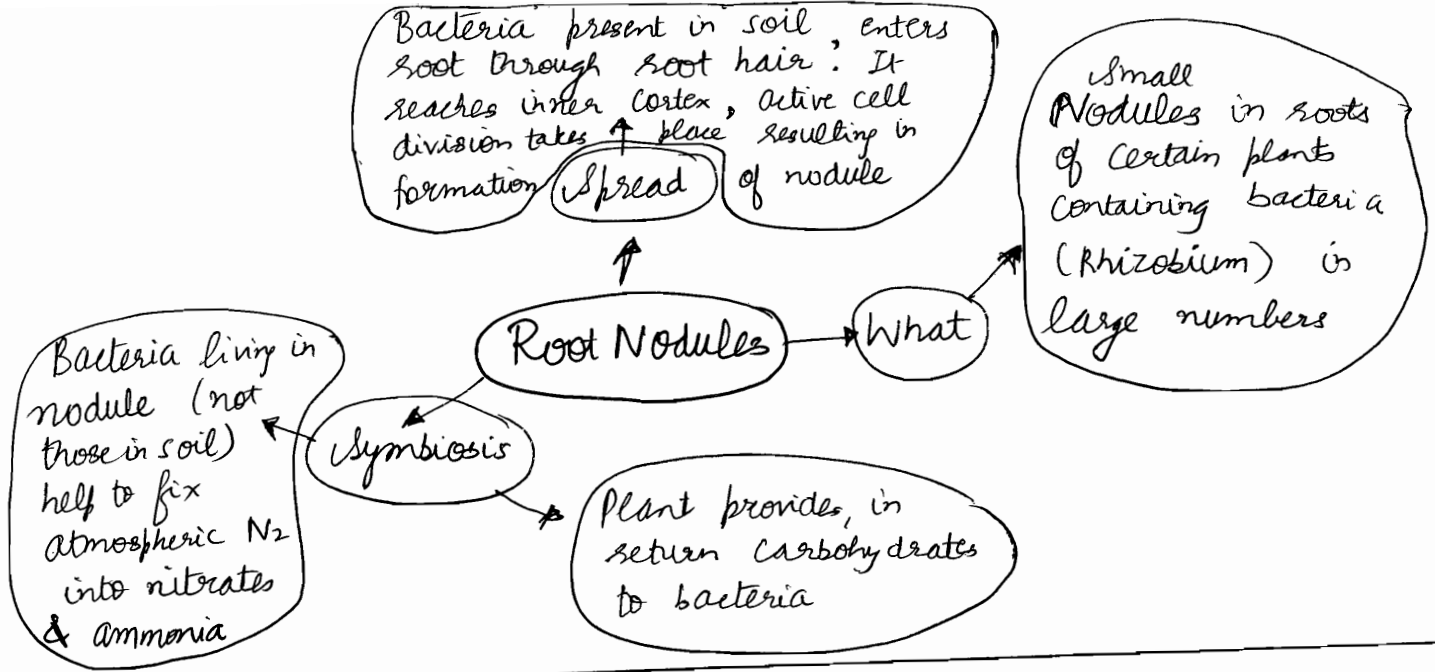 Bacteria present in soil, enters
root through root hair. It
reaches inner cortex, active cell
division takes place resulting in
formation of nodule
Spread
Small
Nodules in roots
of certain plants
containing bacteria
(Rhizobium) in
large numbers
Root Nodules
What
Bacteria living in
nodule (not
those in soil)
help to fix
atmospheric N2
into nitrates
& ammonia
Symbiosis
Plant provides, in
return carbohydrates
to bacteria